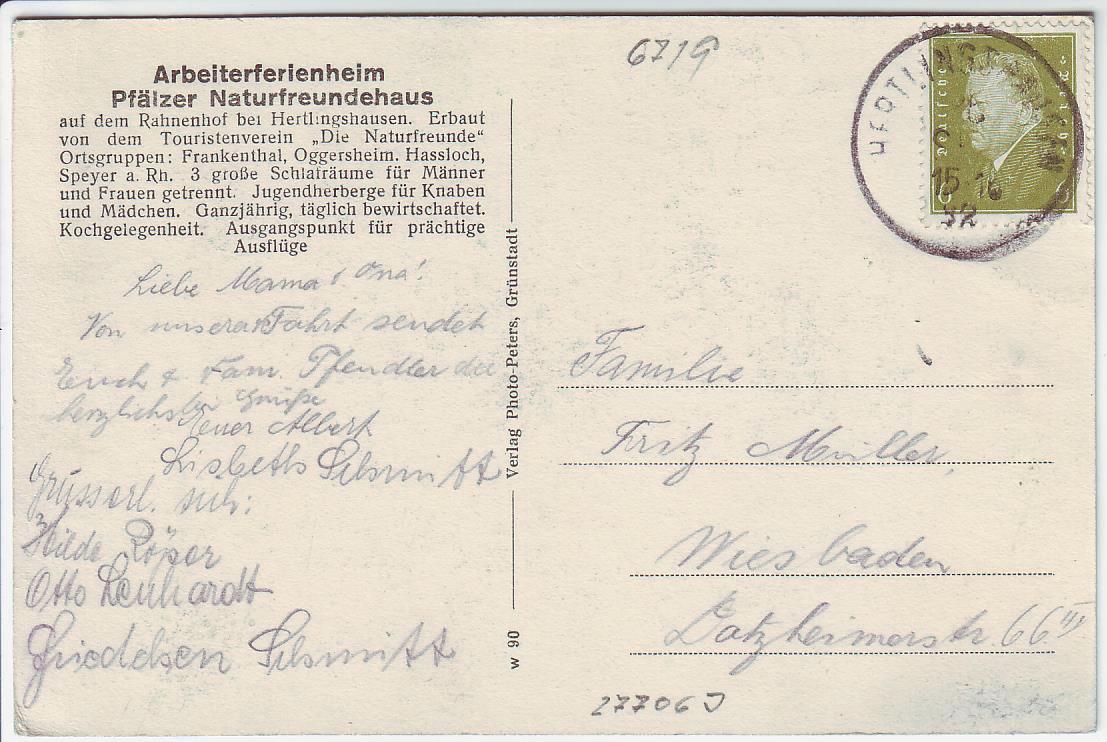 6719
Arbeiterferienheim
Pfälzer Naturfreundehaus
auf dem Rahnenhof bei Hertlingshausen. Erbaut
von dem Touristenverein „Die Naturfreunde“
Ortsgruppen: Frankenthal, Oggersheim. Hassloch,
Speyer a. Rh. 3 große Schlafräume für Männer
und Frauen getrennt. Jugendherberge für Knaben
und Mädchen. Ganzjährig, täglich bewirtschaftet.
Kochgelegenheit. Ausgangspunkt für prächtige
Ausflüge
Liebe Mama &
Von unserer Fahrt sendet
Euch & Fam. Pfendler die
herzlichsten Grüße
Euer Albert
Lisbeth Schmitt
Hilde Röper
Otto Lenhardt
Friedchen Schmitt
Verlag Photo-Peters, Grünstadt
w 90
HERTLINGSHAUSEN
15-16
32
Deutsches Reich
Familie
Fritz Müller,
Wiesbaden
Dotzheimerstr. 66
27706 J